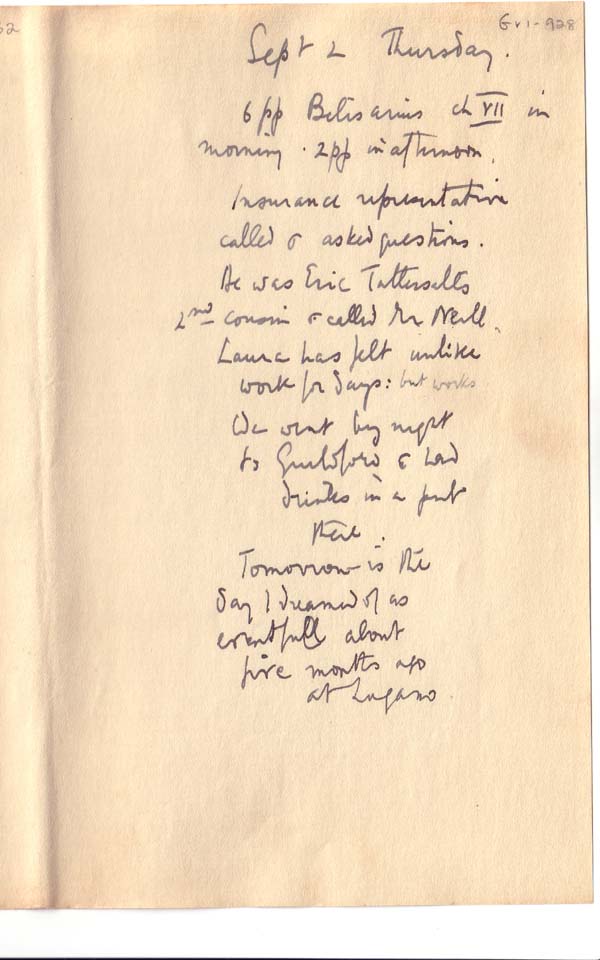 52
Gv1-928
Sept 2 Thursday.
6 pp Belisarius ch VII in
morning. 2pp in afternoon.
Insurance representative
called & asked questions.
He was Eric Tattersalls
2nd cousin & called Mr Neill.
Laura has felt unlike
work for days: but works
We went by night
to Guildford & had
drinks in a pub
there.
Tomorrow is the
day I dreamed of as
eventfull about
five months ago
at Lugano.